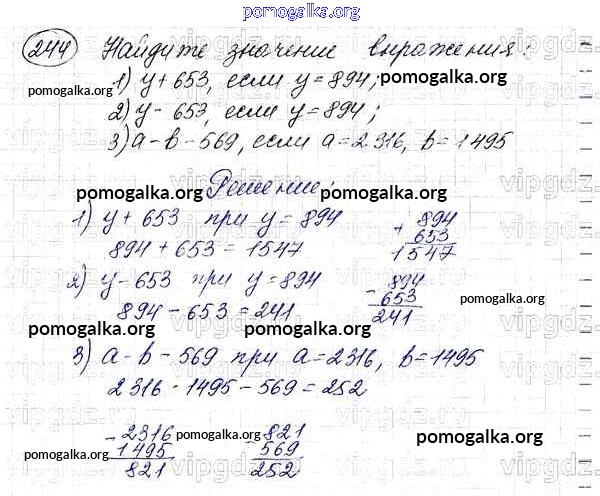 pomogalka.org
244 Найдите значение выражения:
1) y + 653, если y = 894; pomogalka.org
2) y - 653, если y = 894;
3) a - b - 569, если a = 2316, b = 1495
pomogalka.org Решение: pomogalka.org
1) y + 653 при y = 894
894 + 653 = 1547
+ 894
653
1547
2) y - 653 при y = 894
894 - 653 = 241
- 894
653
241
pomogalka.org
pomogalka.org pomogalka.org
3) a - b - 569 при a = 2316, b = 1495
2316 - 1495 - 569 = 252
- 2316
1495
821
pomogalka.org
- 821
569
252
pomogalka.org
pomogalka.org